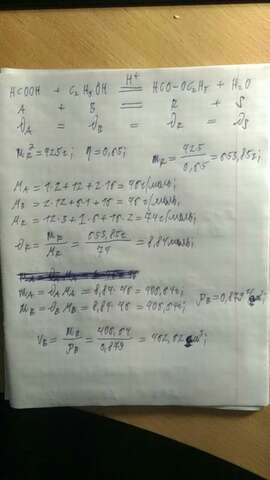 HCOOH + C₂H₅OH ⇌ HCO-OC₂H₅ + H₂O
H⁺
A + B = R + S
∂A = ∂B = ∂R = ∂S
mR² = 925г; η = 0,65;
mR = 925/0,65 = 653,85г;
MA = 1·2+12+2·16 = 46г/моль;
MB = 2·12+6·1+16 = 46г/моль;
MR = 12·3+1·6+16·2 = 74г/моль;
∂R = mR/MR = 653,85г/74 = 8,84моль;
mA = ∂A·MA = 8,84·46 = 406,64г;
mB = ∂B·MB = 8,84·46 = 406,64г;
ρB = 0,879
VB = mB/ρB = 406,64/0,879 = 462,62